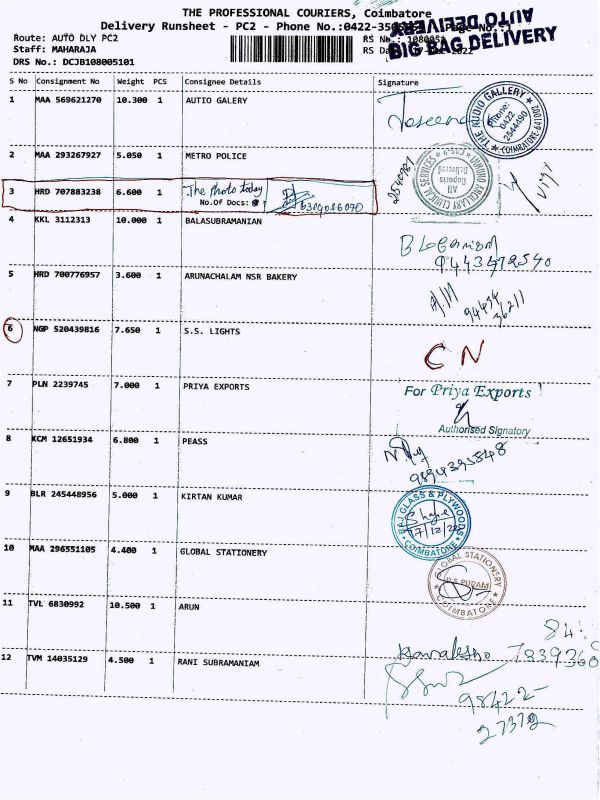 THE PROFESSIONAL COURIERS, Coimbatore
Delivery Runsheet - PC2 - Phone No.:0422-350
AUTO DELIVERY
BIG BAG DELIVERY
Route: AUTO DLY PC2
Staff: MAHARAJA
RS No.: 1080051
RS Da
2022
DRS No.: DCJB108005101
S No Consignment No Weight PCS Consignee Details Signature
1 MAA 569621270 10.300 1 AUTIO GALERY
THE AUDIO GALLERY
Phone: 0422 2544490
COIMBATORE 641002
2 MAA 293267927 5.050 1 METRO POLICE
CLINICAL SERVICES
All Reports Delivered
3 HRD 707883238 6.600 1 The Photo today
No.Of Docs:
4 KKL 3112313 10.000 1 BALASUBRAMANIAN
9443472540
5 HRD 700776957 3.600 1 ARUNACHALAM NSR BAKERY
94434
36211
6 NGP 520439816 7.650 1 S.S. LIGHTS
CN
7 PLN 2239745 7.000 1 PRIYA EXPORTS
For Priya Exports
Authorised Signatory
8 KCM 12651934 6.800 1 PEASS
9894395848
9 BLR 245448956 5.000 1 KIRTAN KUMAR
RAJ GLASS & PLYWOODS
17/12/
COIMBATORE
10 MAA 296551105 4.400 1 GLOBAL STATIONERY
GLOBAL STATIONERY
R.S PURAM
COIMBATORE
11 TVL 6830992 10.500 1 ARUN
84
12 TVM 14035129 4.500 1 RANI SUBRAMANIAM
98422
27372